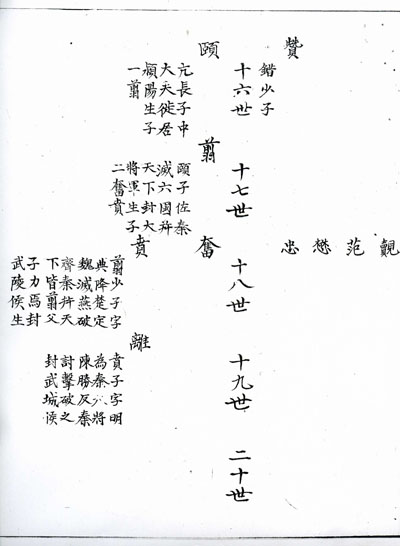 贊
錯少子
十六世
頤
亢長子中
大夫徙居
頻陽生子
一翦
十七世
翦
頤子佐秦
滅六國并
天下封大
將軍生子
二奮賁
觀
范
懋
忠
十八世
奮
賁
翦少子字
典降楚定
魏滅燕破
齊秦并天
下皆翦父
子力焉封
武陵侯生
十九世
離
賁子字明
為秦大將
陳勝反秦
討擊破之
封武城侯
二十世